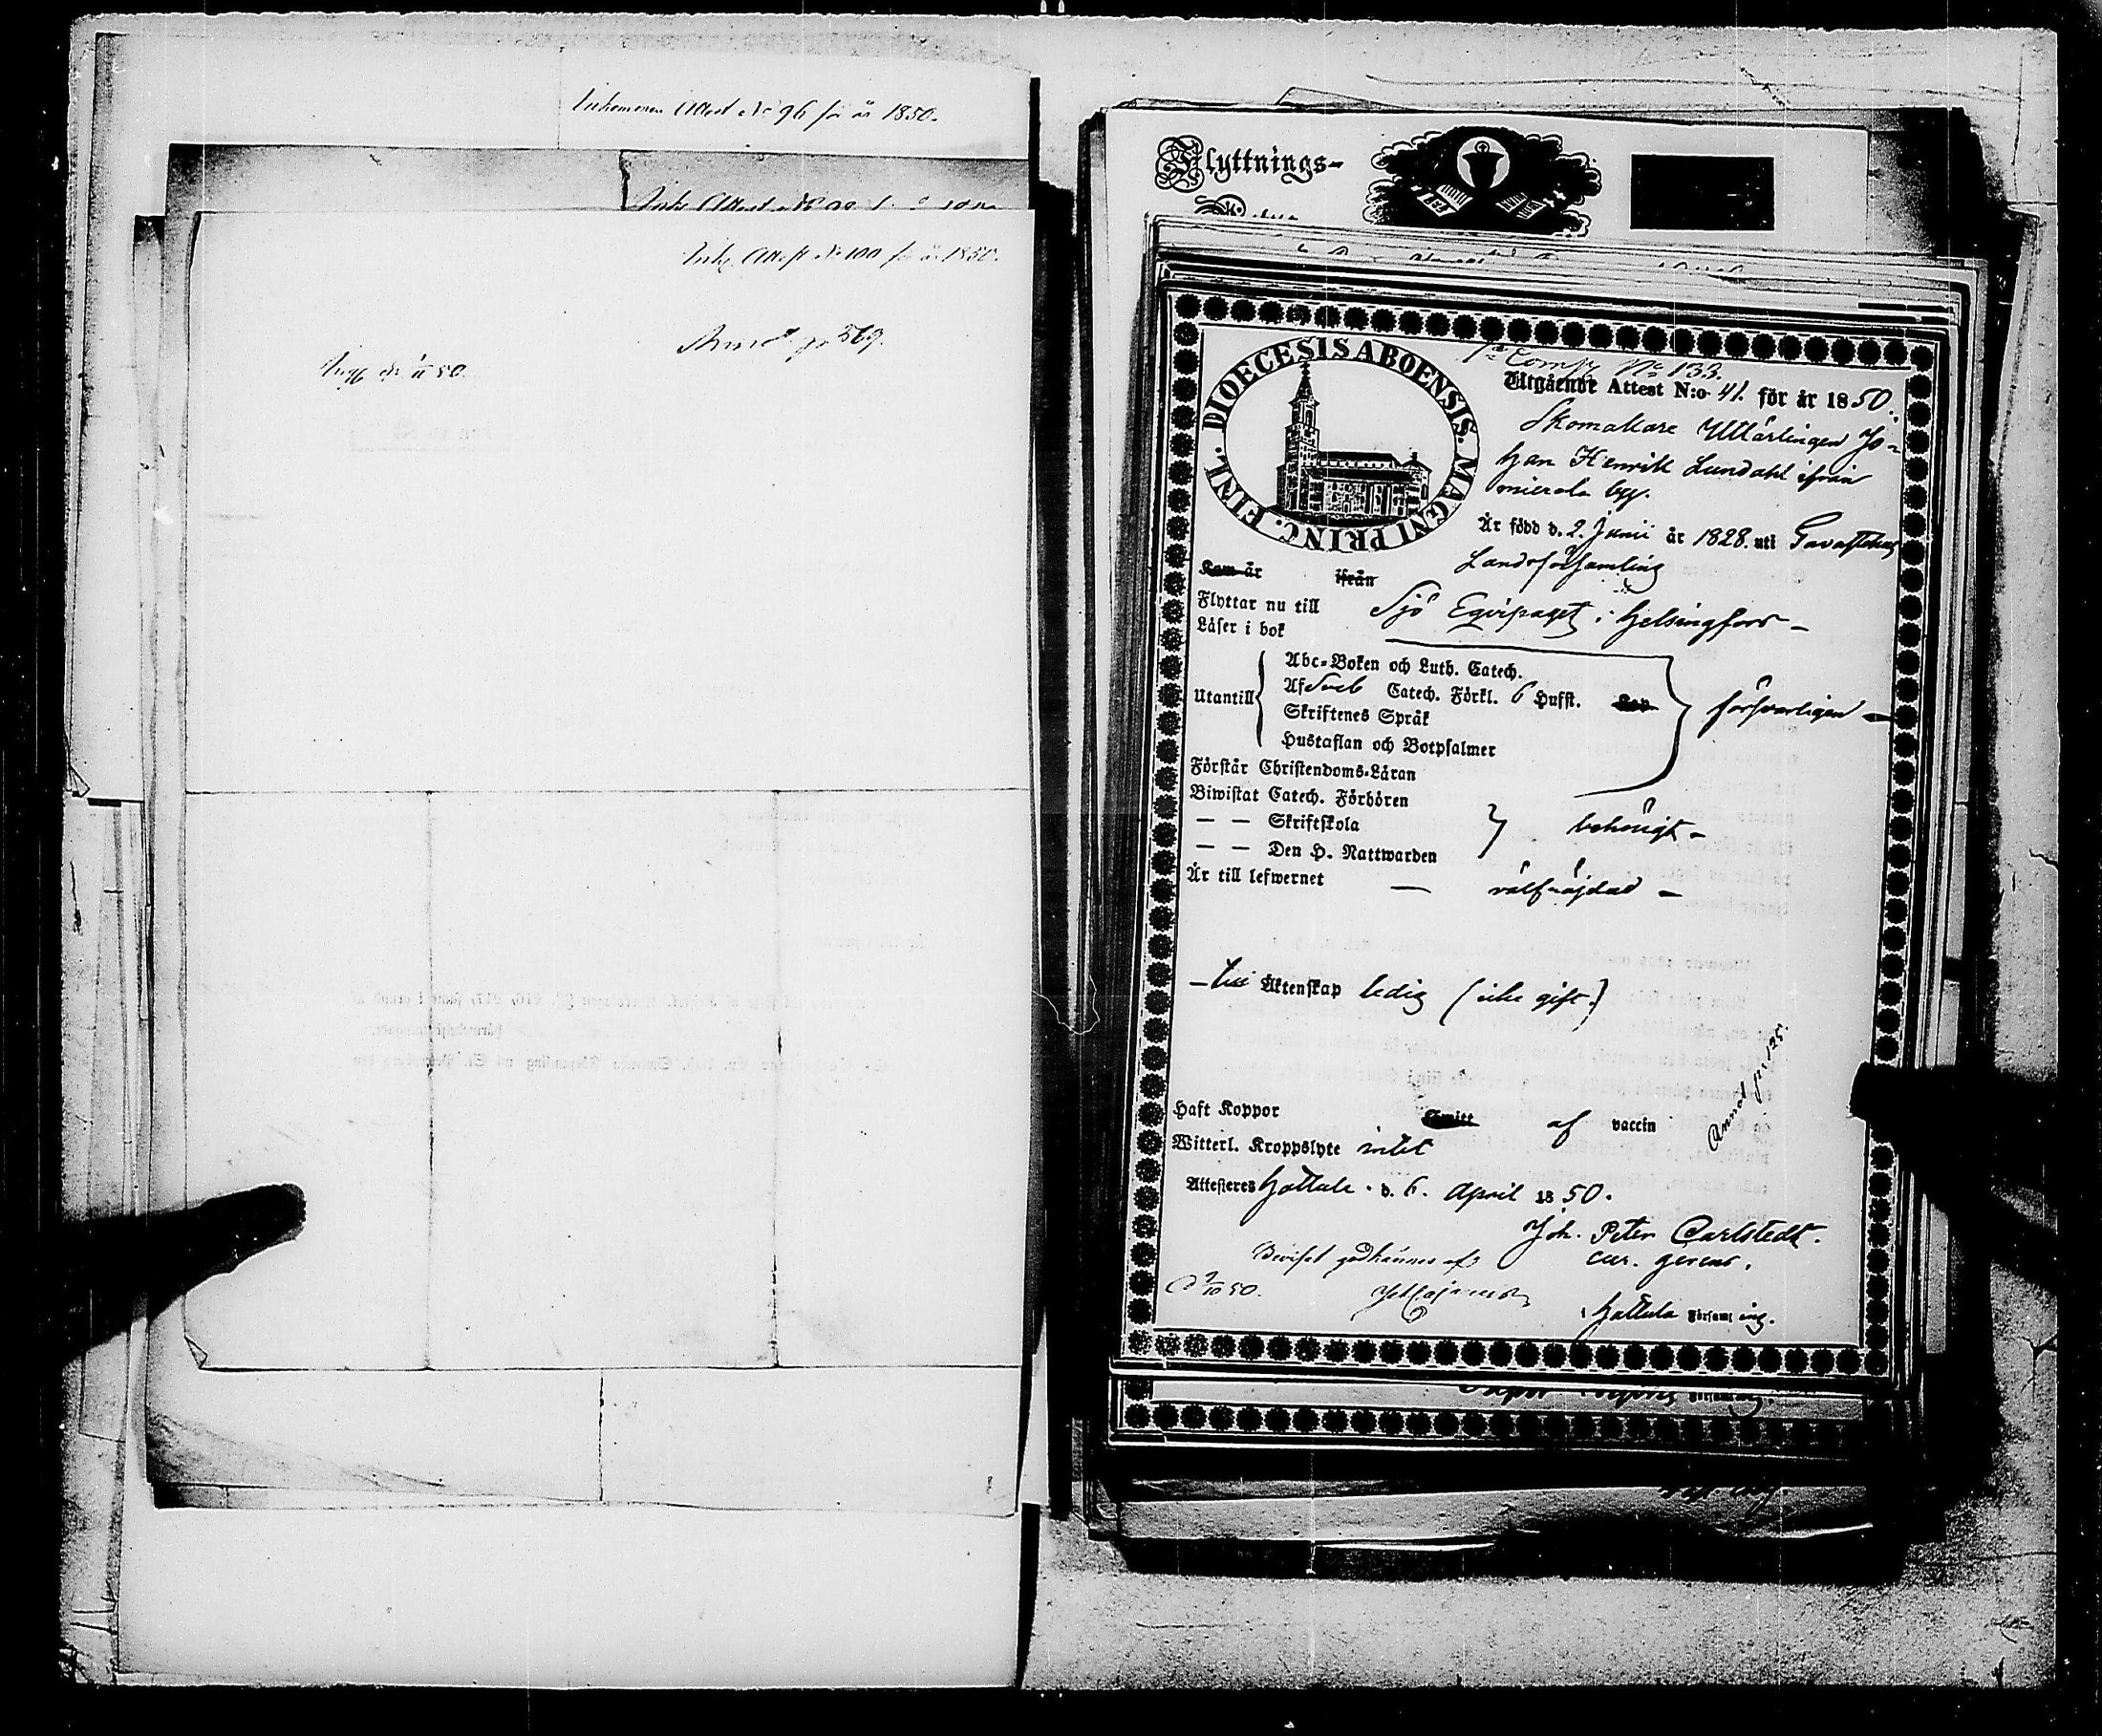 Inkommen Attest No 96 för år 1850.
Ink. Attest No 100 för år 1850.
Annot p. 369.
Flyttnings-
DIOECESIS ABOENSIS. MAGNI PRINC. FINL.
1a Comp No 133.
Utgående Attest N:o 41. för år 1850.
Skomakare Lärlingen Jo-
han Henrik Lundahl ifrån
mierola by.
Är född d. 2. Junii år 1828. uti Tavastehus
Landsförsamling
Kom är ifrån
Flyttar nu till Sjö Eqvipaget i Helsingfors -
Läser i bok
Utantill
Abc-Boken och Luth. Catech.
Af Sveb Catech. Förkl. 6 Hufst.
Skriftenes Språk
Hustaflan och Botpsalmer
försvarligen -
Förstår Christendoms-Läran
Biwistat Catech. Förhören
— — Skriftskola
— — Den H. Nattwarden
behörigt -
Är till lefwernet — välfräjdad -
- till Äktenskap ledig (icke gift.)
Annot p. 125.
Haft Koppor af vaccin
Witterl. Kroppslyte intet
Attesteres Hattula. d. 6. April 1850.
Joh. Peter Carlstedt.
cur. gerens.
Beviset godkännes af
i Hattula Församling.